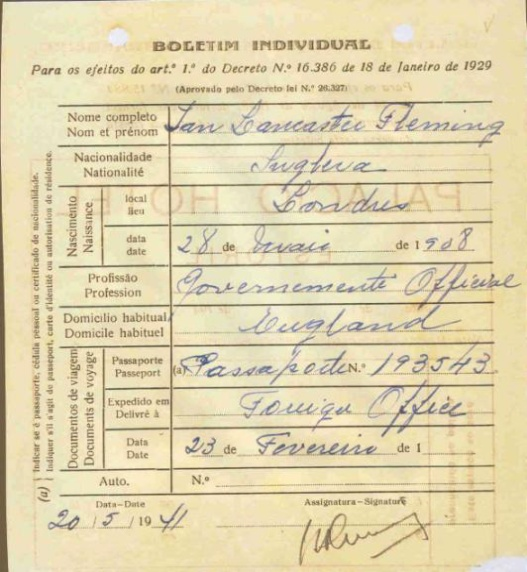 BOLETIM INDIVIDUAL
Para os efeitos do art.º 1.º do Decreto N.º 16.386 de 18 de Janeiro de 1929
(Aprovado pelo Decreto lei N.º 26.327)
Nome completo
Nom et prénom
Ian Lancaster Fleming
Nacionalidade
Nationalité
Inglesa
Nascimento
Naissance
local
lieu
Londres
data
date
28 de Maio de 1908
Profissão
Profession
Governemente Official
Domicilio habitual
Domicile habituel
England
Documentos de viagem
Documents de voyage
Passaporte
Passeport
(a) Passaporte N.º 193543
Expedido em
Delivré à
Foreign Office
Data
Date
23 de Fevereiro de 1
Auto.
N.º
Data-Date
20/5/1941
Assignatura-Signature
(a) Indicar se é passaporte, cédula pessoal ou certificado de nacionalidade.
Indiquer s'il s'agit de passeport, carte d'identité ou autorisation de résidence.
PALACIO HOTEL
ESTORIL